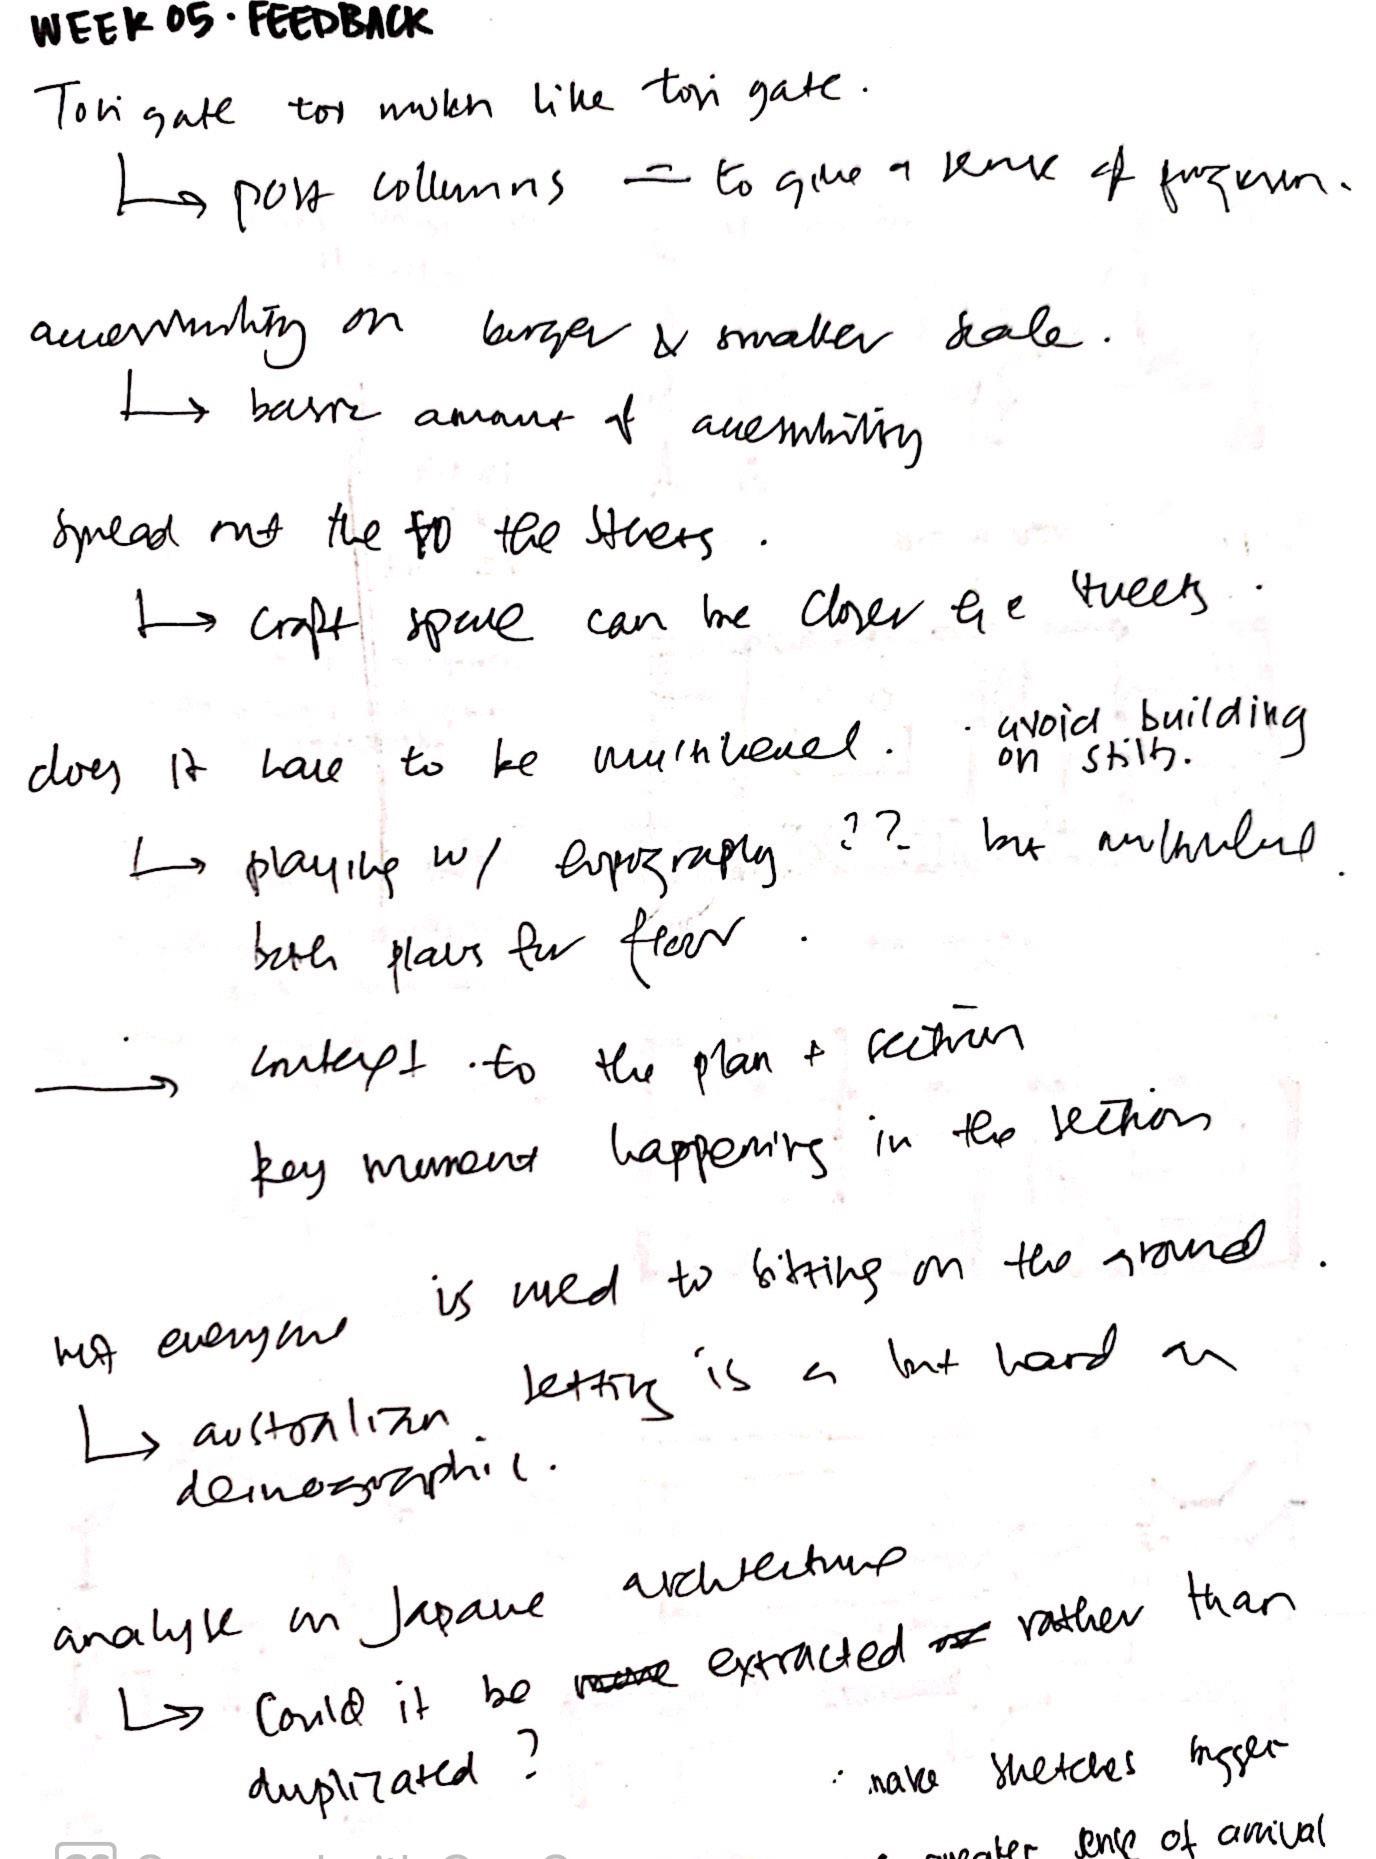 WEEK 05 · FEEDBACK
Tori gate too much like tori gate.
↳ post collumns = to give a sense of progression.
accessibility on larger & smaller scale.
↳ basic amount of accessibility
spread out the to the streets.
↳ craft space can be closer the streets.
does it have to be multilevel. · avoid building
on stilts.
↳ playing w/ topography ?? but multilevel.
both plans for floor.
→ context to the plan + section
key moment happening in the section
not everyone is used to sitting on the ground.
↳ australian setting is a bit hard on
demographic.
analyse on Japane architecture
↳ Could it be extracted rather than
duplicated?
· make sketches bigger
greater sense of arrival